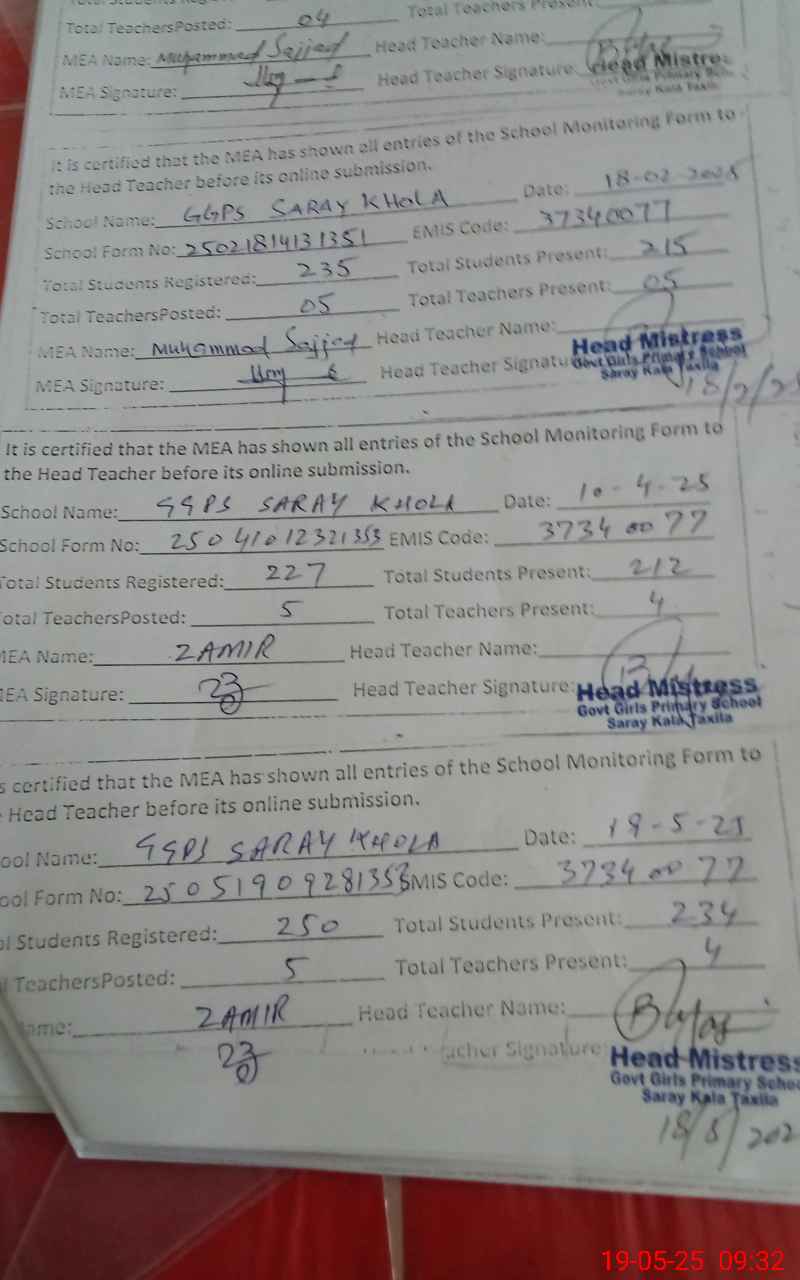 Total TeachersPosted: 04 Total Teachers Present:
MEA Name: Muhammad Sajjad Head Teacher Name:
MEA Signature: Head Teacher Signature Head Mistre
It is certified that the MEA has shown all entries of the School Monitoring Form to
the Head Teacher before its online submission.
School Name: GGPS SARAY KHOLA Date: 18-02-2025
School Form No: 25021814131351 EMIS Code: 37340077
Total Students Registered: 235 Total Students Present: 215
Total TeachersPosted: 05 Total Teachers Present: 05
MEA Name: Muhammad Sajjad Head Teacher Name:
MEA Signature: Head Teacher Signatu
Head Mistress
Govt Girls Primary School
Saray Kala Taxila
18/2/25
It is certified that the MEA has shown all entries of the School Monitoring Form to
the Head Teacher before its online submission.
School Name: GGPS SARAY KHOLA Date: 10-4-25
School Form No: 25041012321353 EMIS Code: 37340077
Total Students Registered: 227 Total Students Present: 212
Total TeachersPosted: 5 Total Teachers Present: 4
MEA Name: ZAMIR Head Teacher Name:
MEA Signature: Head Teacher Signature:
Head Mistress
Govt Girls Primary School
Saray Kala Taxila
s certified that the MEA has shown all entries of the School Monitoring Form to
Head Teacher before its online submission.
ool Name: GGPS SARAY KHOLA Date: 19-5-25
ool Form No: 25051909281353 EMIS Code: 37340077
al Students Registered: 250 Total Students Present: 234
l TeachersPosted: 5 Total Teachers Present: 4
ame: ZAMIR Head Teacher Name:
acher Signature:
Head Mistress
Govt Girls Primary Schoo
Saray Kala Taxila
19-05-25 09:32